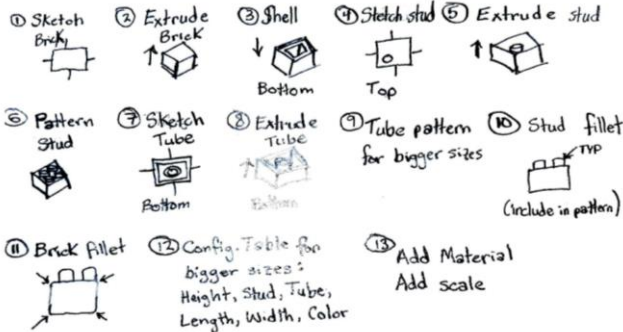 ① Sketch
Brick
② Extrude
Brick
③ Shell
Bottom
④ Sketch stud
Top
⑤ Extrude stud
⑥ Pattern
Stud
⑦ Sketch
Tube
Bottom
⑧ Extrude
Tube
Bottom
⑨ Tube pattern
for bigger sizes
⑩ Stud fillet
TYP
(include in pattern)
⑪ Brick fillet
⑫ Config. Table for
bigger sizes:
Height, Stud, Tube,
Length, Width, Color
⑬
Add Material
Add scale